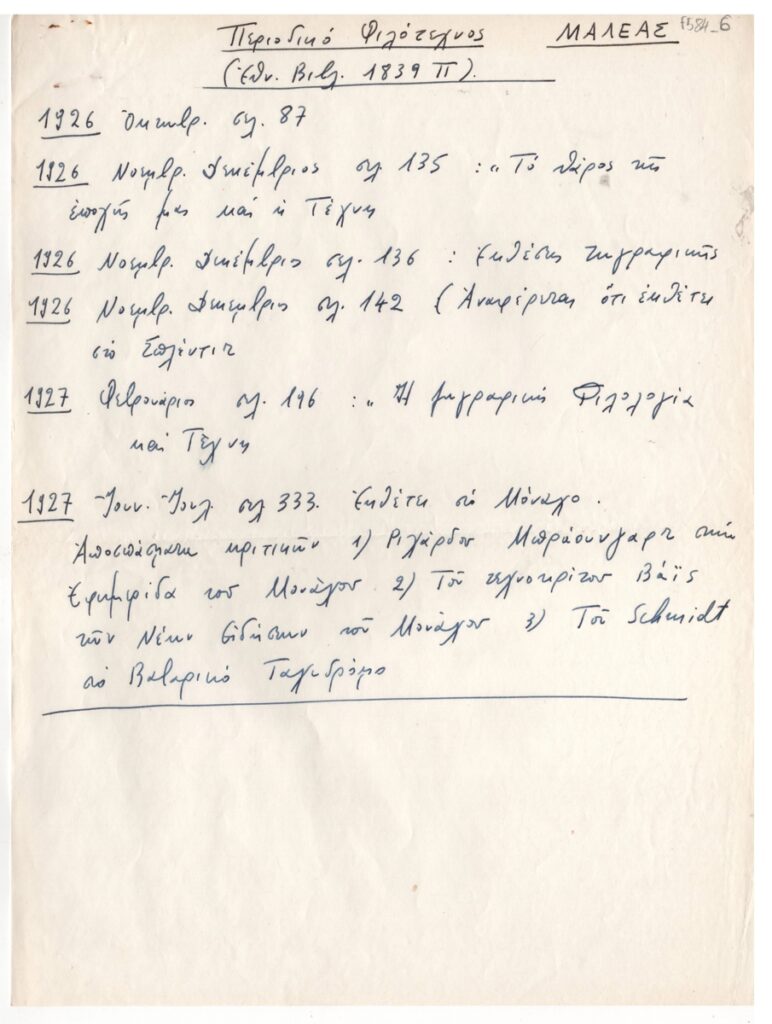 Περιοδικό Φιλότεχνος ΜΑΛΕΑΣ F584_6
(Ἐθν. Βιβλ. 1839 Π).
1926 Ὀκτωβρ. σελ. 87
1926 Νοεμβρ. Δεκέμβριος σελ 135 : "Τό θάρος τῆς
ἐποχῆς μας καί ἡ Τέχνη
1926 Νοεμβρ. Δεκέμβριος σελ. 136 : Ἐκθέσεις ζωγραφικῆς
1926 Νοεμβρ. Δεκεμβριος σελ. 142 (Ἀναφέρεται ὅτι ἐκθέτει
στό Σπλέντιτ
1927 Φεβρουάριος σελ. 196 : "Ἡ ζωγραφική Φιλολογία
καί Τέχνη
1927 Ἰουν. Ἰουλ. σελ 333. Ἐκθέτει στό Μόναχο.
Ἀποσπάσματα κριτικῶν 1) Ριχάρδου Μπράουνγαρτ στήν
Ἐφημερίδα του Μονάχου 2) Τοῦ τεχνοκρίτου Βάϊς
τῶν Νέων Εἰδήσεων τοῦ Μονάχου 3) Τοῦ Schmidt
στό Βαβαρικό Ταχυδρόμο